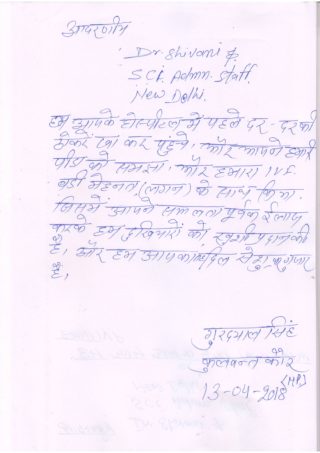 आदरणीय
Dr. Shivani G.
SCI. Admn. Staff.
New Delhi.
हम आपके होस्पीटल में पहले दर-दर की
ठोकरें खा कर पहुंचे, और आपने हमारी
पीड़ा को समझा, और हमारा IVF
बड़ी मेहनत (लगन) के साथ किया,
जिसमें आपने सफलता पूर्वक ईलाज
करके हम दुखियारों को, खुशी प्रदान की
है, और हम आपका दिल से शुक्रगुजार
है,
गुरदयाल सिंह
कुलवन्त कौर
(HP)
13-04-2018